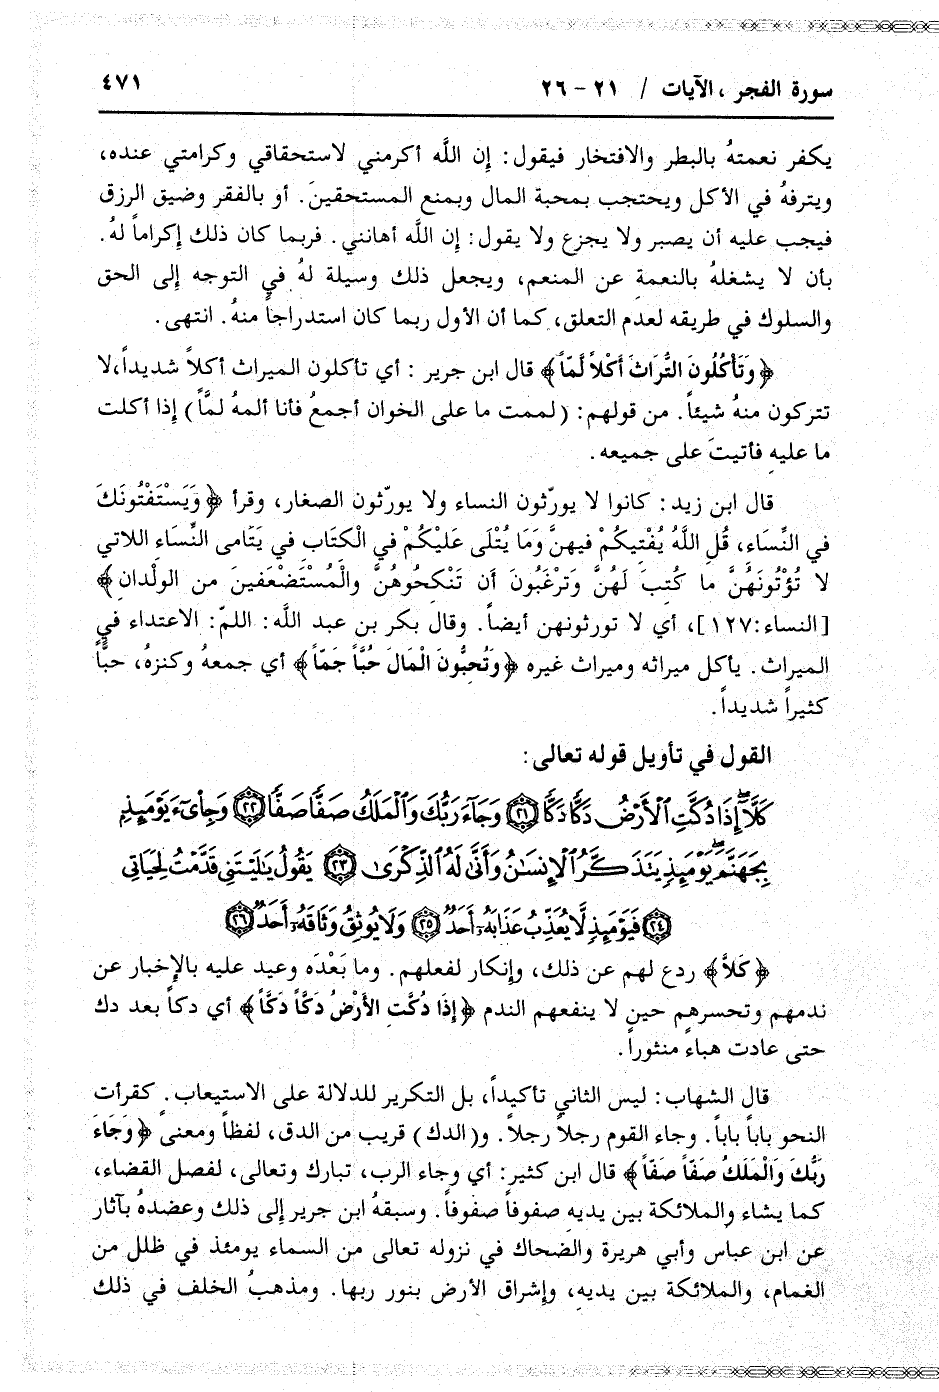 سورة الفجر ، الآيات / ٢١ - ٢٦ ٤٧١
يكفر نعمتهُ بالبطر والافتخار فيقول: إن اللَّه أكرمني لاستحقاقي وكرامتي عنده،
ويترفهُ في الأكل ويحتجب بمحبة المال وبمنع المستحقينَ. أو بالفقر وضيق الرزق
فيجب عليه أن يصبر ولا يجزع ولا يقول: إن اللَّه أهانني. فربما كان ذلك إكراماً لهُ.
بأن لا يشغلهُ بالنعمةِ عن المنعم، ويجعل ذلك وسيلة لهُ في التوجه إلى الحق
والسلوك في طريقه لعدم التعلق، كما أن الأول ربما كان استدراجاً منهُ. انتهى.
﴿وَتَأْكُلُونَ التُّرَاثَ أَكْلاً لَمّاً﴾ قال ابن جرير : أي تأكلون الميراث أكلاً شديداً،لا
تتركون منهُ شيئاً. من قولهم: (لممت ما على الخوان أجمعُ فأنا ألمهُ لمَّاً) إذا أكلت
ما عليهِ فأتيتَ على جميعه.
قال ابن زيد: كانوا لا يورّثون النساء ولا يورّثون الصغار، وقرأ ﴿وَيَسْتَفْتُونَكَ
في النِّسَاءِ، قُلِ اللَّهُ يُفْتِيكُمْ فيهنَّ وَمَا يُتْلَى عَلَيْكُمْ في الْكِتَابِ في يَتَامى النِّسَاءِ اللاتي
لا تُؤْتُونَهُنَّ ما كُتِبَ لَهُنَّ وَتَرْغَبُونَ أَن تَنْكِحُوهُنَّ والْمُسْتَضْعَفينَ من الولْدانِ﴾
[النساء:١٢٧]، أي لا تورثونهن أيضاً. وقال بكر بن عبد اللَّه: اللمّ: الاعتداء في
الميراث. يأكل ميراثه وميراث غيره ﴿وَتُحبُّونَ الْمَالَ حُبَّاً جَمّاً﴾ أي جمعهُ وكنزهُ، حبّاً
كثيراً شديداً.
القول في تأويل قوله تعالى:
كَلَّآ إِذَا دُكَّتِ ٱلْأَرْضُ دَكًّا دَكًّا ﴿٢١﴾ وَجَآءَ رَبُّكَ وَٱلْمَلَكُ صَفًّا صَفًّا ﴿٢٢﴾ وَجِاْىٓءَ يَوْمَئِذٍۭ
بِجَهَنَّمَ يَوْمَئِذٍ يَتَذَكَّرُ ٱلْإِنسَٰنُ وَأَنَّىٰ لَهُ ٱلذِّكْرَىٰ ﴿٢٣﴾ يَقُولُ يَٰلَيْتَنِى قَدَّمْتُ لِحَيَاتِى
﴿٢٤﴾ فَيَوْمَئِذٍ لَّا يُعَذِّبُ عَذَابَهُۥٓ أَحَدٌ ﴿٢٥﴾ وَلَا يُوثِقُ وَثَاقَهُۥٓ أَحَدٌ ﴿٢٦﴾
﴿كَلاَّ﴾ ردع لهم عن ذلك، وإنكار لفعلهم. وما بَعْدَه وعيد عليه بالإخبار عن
ندمهم وتحسرهم حين لا ينفعهم الندم ﴿إذَا دُكَّت الأَرْضُ دَكَّاً دَكَّاً﴾ أي دكاً بعد دك
حتى عادت هباء منثوراً.
قال الشهاب: ليس الثاني تأكيداً، بل التكرير للدلالة على الاستيعاب. كقرأت
النحو باباً باباً. وجاء القوم رجلاً رجلاً. و(الدك) قريب من الدق، لفظاً ومعنى ﴿وَجَاءَ
رَبُّكَ وَالْمَلَكُ صَفّاً صَفّاً﴾ قال ابن كثير: أي وجاء الرب، تبارك وتعالى، لفصل القضاء،
كما يشاء والملائكة بين يديه صفوفاً صفوفاً. وسبقهُ ابن جرير إلى ذلك وعضدهُ بآثار
عن ابن عباس وأبي هريرة والضحاك في نزوله تعالى من السماء يومئذ في ظلل من
الغمام، والملائكة بين يديهِ، وإشراق الأرض بنور ربها. ومذهبُ الخلف في ذلك